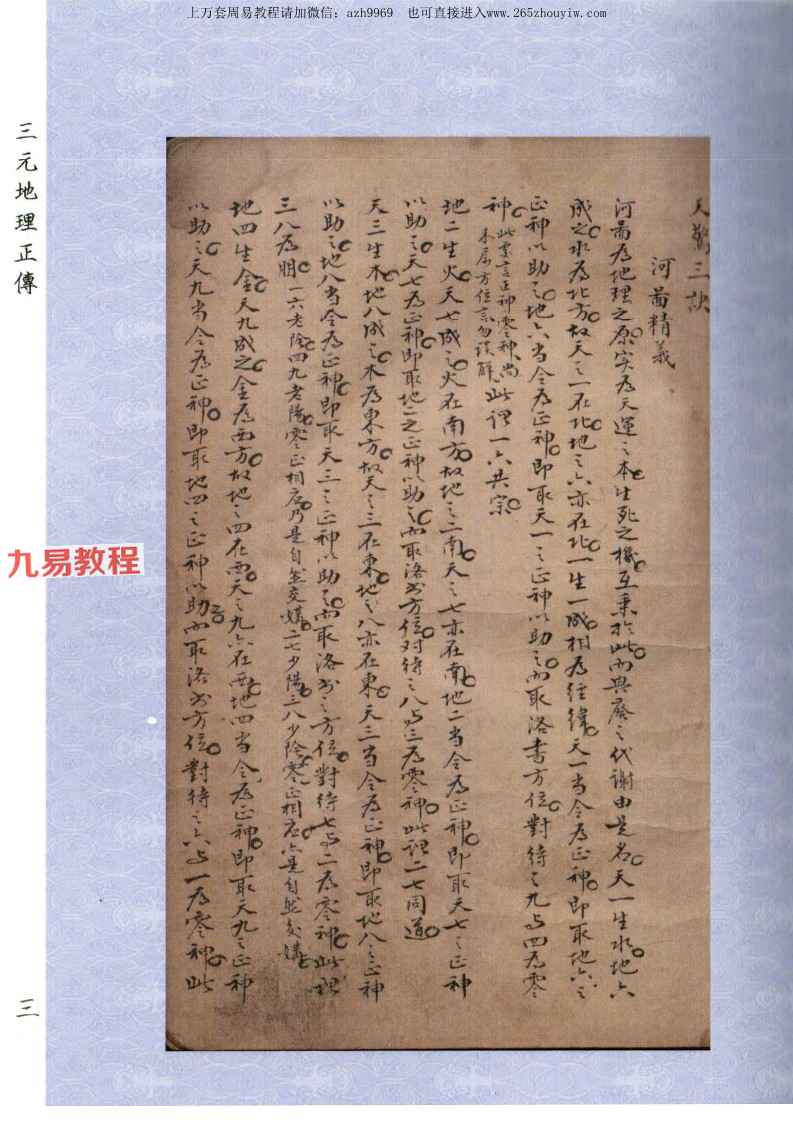 上万套周易教程请加微信：azh9969　也可直接进入www.265zhouyiw.com
三元地理正傳
九易教程
天驚三訣
河啚精義
河啚為地理之原實為天運之本生死之機互乘於此而興廢之代謝由是名天一生水地六
成之水為北方故天之一在北地之六亦在北一生一成相為經緯天一當令為正神即取地六之
正神以助之地六當令為正神即取天一之正神以助之而取洛書方位對待之九与四為零
神此零言正神零神尚
未屬方位言勿誤解此謂一六共宗
地二生火天七成之火在南方故地之二南天之七亦在南地二当令為正神即取天七之正神
以助之天七為正神即取地二之正神以助之而取洛书方位对待之八与三為零神此谓二七同道
天三生木地八成之木為東方故天之三在東地之八亦在東天三当令為正神即取地八之正神
以助之地八当令為正神即取天三之正神以助之而取洛书之方位對待七与二為零神此谓
三八為朋一六老陰四九老陽零正相應乃是自然交媾二七少陽三八少陰零正相應亦是自然交媾
地四生金天九成之金為西方故地之四在西天之九亦在西地四当令為正神即取天九之正神
以助之天九当令為正神即取地四之正神以助而取洛书方位對待之六与一為零神此
三